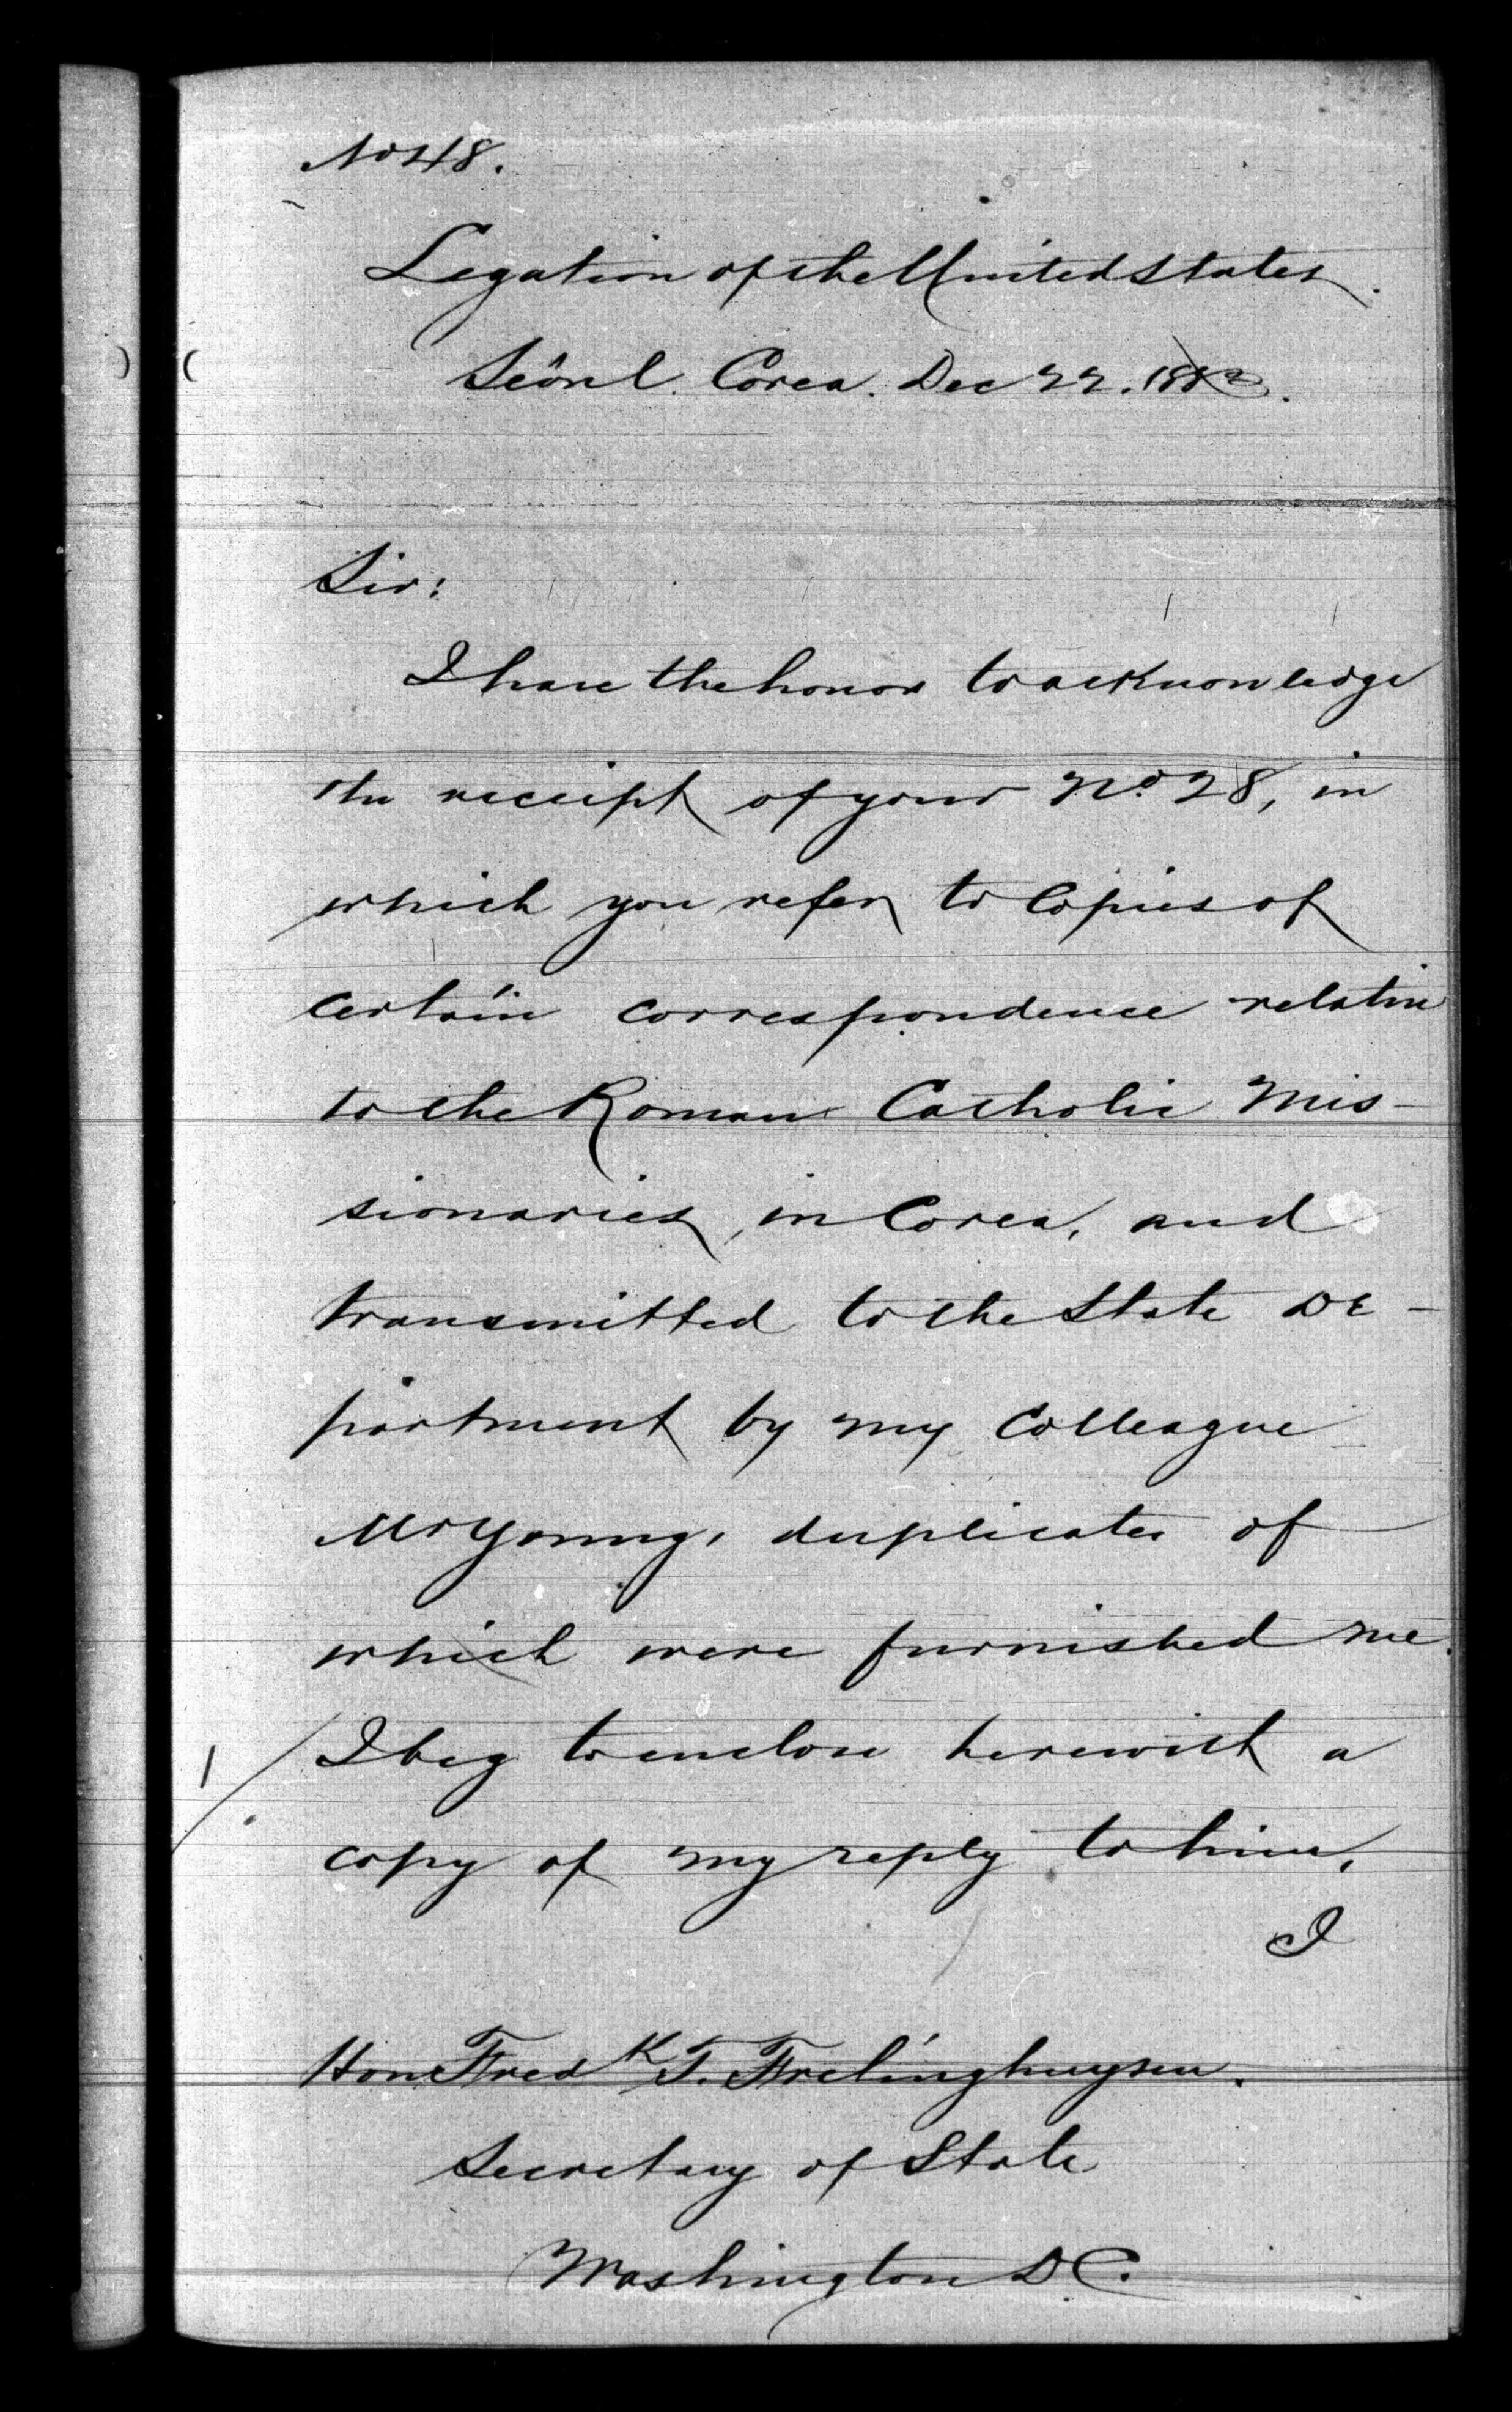 No 48.
Legation of the United States.
Seoul. Corea. Dec 22. 1883.
Sir:
I have the honor to acknowledge
the receipt of your No. 28, in
which you refer to Copies of
certain correspondence relative
to the Roman Catholic Mis-
sionaries, in Corea, and
transmitted to the State De-
partment by my Colleague
Mr Young, duplicates of
which were furnished me.
1/ I beg to enclose herewith a
copy of my reply to him.
I
Hon Fredk T. Frelinghuysen.
Secretary of State
Washington DC.